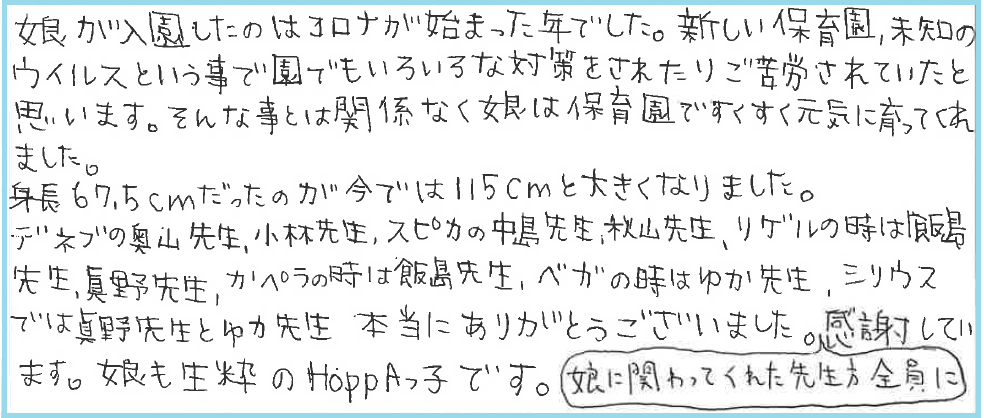 娘が入園したのはコロナが始まった年でした。新しい保育園,未知の
ウイルスという事で園でもいろいろな対策をされたりご苦労されていたと
思います。そんな事とは関係なく娘は保育園ですくすく元気に育ってくれ
ました。
身長67.5cmだったのが今では115cmと大きくなりました。
デネブの奥山先生,小林先生,スピカの中島先生,秋山先生,リゲルの時は飯島
先生,真野先生,カペラの時は飯島先生,ベガの時はゆか先生,シリウス
では真野先生とゆか先生 本当にありがとうございました。感謝してい
ます。娘も生粋のHoppAっ子です。娘に関わってくれた先生方全員に